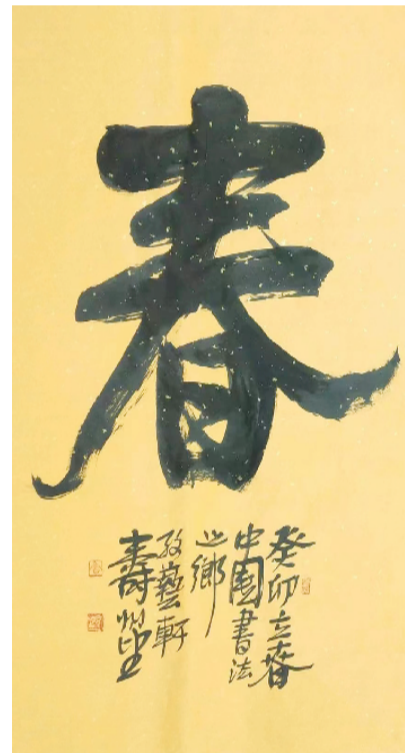 春
癸卯立春
中国書法
之鄉
藝軒
壽